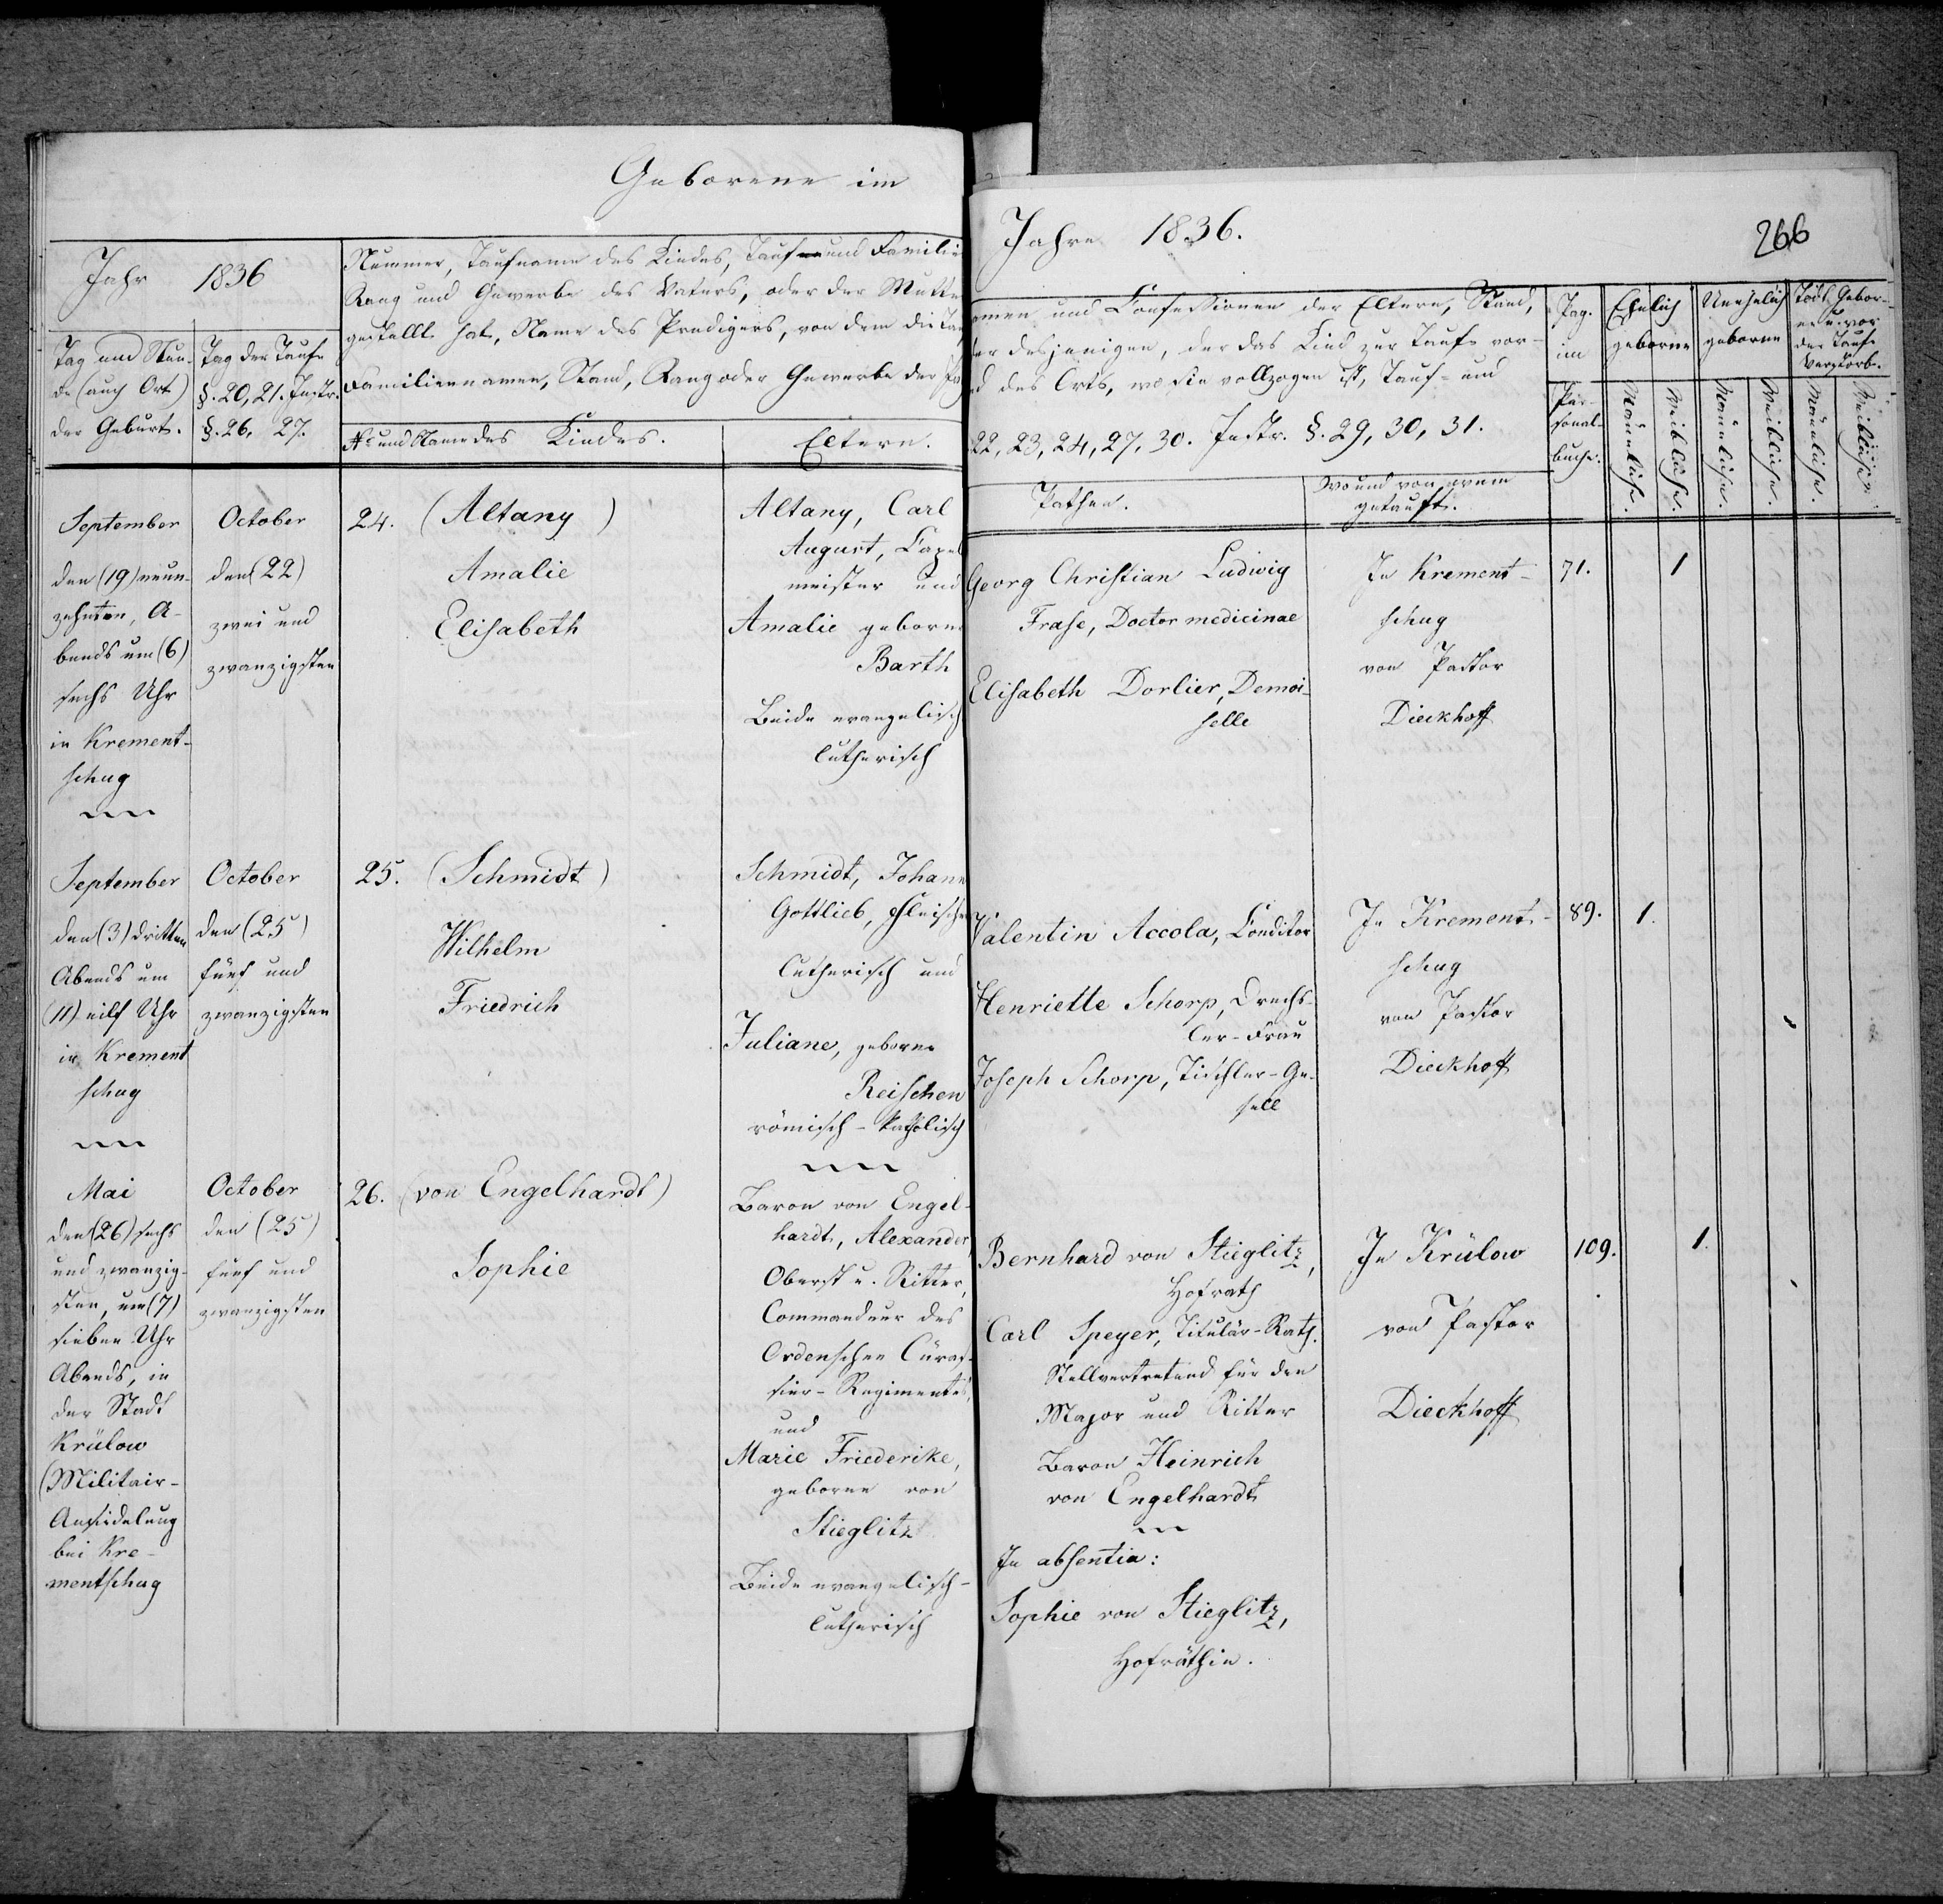 Geborene im
Jahr 1836
Tag und Stun-
de (auch Ort)
der Geburt.
Tag der Taufe
§. 20, 21. Instr.
§. 26, 27.
Nummer, Taufname des Kindes, Tauf und Familie
Rang und Gewerbe des Vaters, oder der Mutte
gestellt hat, Name des Predigers, von dem die Tau
Familiennamen, Stand, Rang oder Gewerbe der
No und Name des Kindes.
Eltern.
September
den (19) neun-
zehnten, A-
bends um (6)
sechs Uhr
in Krement-
schug
October
den (22)
zwei und
zwanzigsten
24. (Altany)
Amalie
Elisabeth
Altany, Carl
August, Capel
meister und
Amalie geborne
Barth
Beide evangelisch
lutherisch
September
den (3) dritten
Abends um
(11) eilf Uhr
in Krement
schug
October
den (25)
fünf und
zwanzigsten
25. (Schmidt)
Wilhelm
Friedrich
Schmidt, Johann
Gottlieb, Fleischer
lutherisch und
Juliane, geborne
Reischen
römisch-katholisch
Mai
den (26) sechs
und zwanzig-
sten, um (7)
sieben Uhr
Abends, in
der Stadt
Krülow
(Militair-
Ansiedelung
bei Kre-
mentschug
October
den (25)
fünf und
zwanzigsten
26. (von Engelhardt)
Sophie
Baron von Engel-
hardt, Alexander,
Oberst u. Ritter,
Commandeur des
Ordenschen Cüras-
sier-Regimentes,
und
Marie Friederike,
geborne von
Stieglitz
Beide evangelisch-
lutherisch
Jahre 1836.
266
amen und Confessionen der Eltern, Stand,
der desjenigen, der das Kind zur Taufe vor-
d des Orts, wo sie vollzogen ist, Tauf- und
22, 23, 24, 27, 30. Instr. §. 29, 30, 31.
Pathen.
Wo und von wem
getauft.
Pag.
im
Per-
sonal-
buche.
Ehelich
geborne
Unehelich
geborne
Todt Gebor-
ne u. vor
der Taufe
Verstorb.
Männliche.
Weibliche.
Männliche.
Weibliche.
Männliche.
Weibliche.
Georg Christian Ludwig
Frase, Doctor medicinae
Elisabeth Dorlier, Demoi-
selle
In Krement-
schug
von Pastor
Dieckhoff
71.
1
Valentin Accola, Conditor
Henriette Schorp, Drechs-
ler-Frau
Joseph Schorp, Tischler-Ge-
sell
In Krement-
schug
von Pastor
Dieckhoff
89.
1.
Bernhard von Stieglitz,
Hofrath
Carl Speyer, Titulär-Rath.
Stellvertretend für den
Major und Ritter
Baron Heinrich
von Engelhardt
In absentia:
Sophie von Stieglitz,
Hofräthin.
In Krülow
von Pastor
Dieckhoff
109.
1.